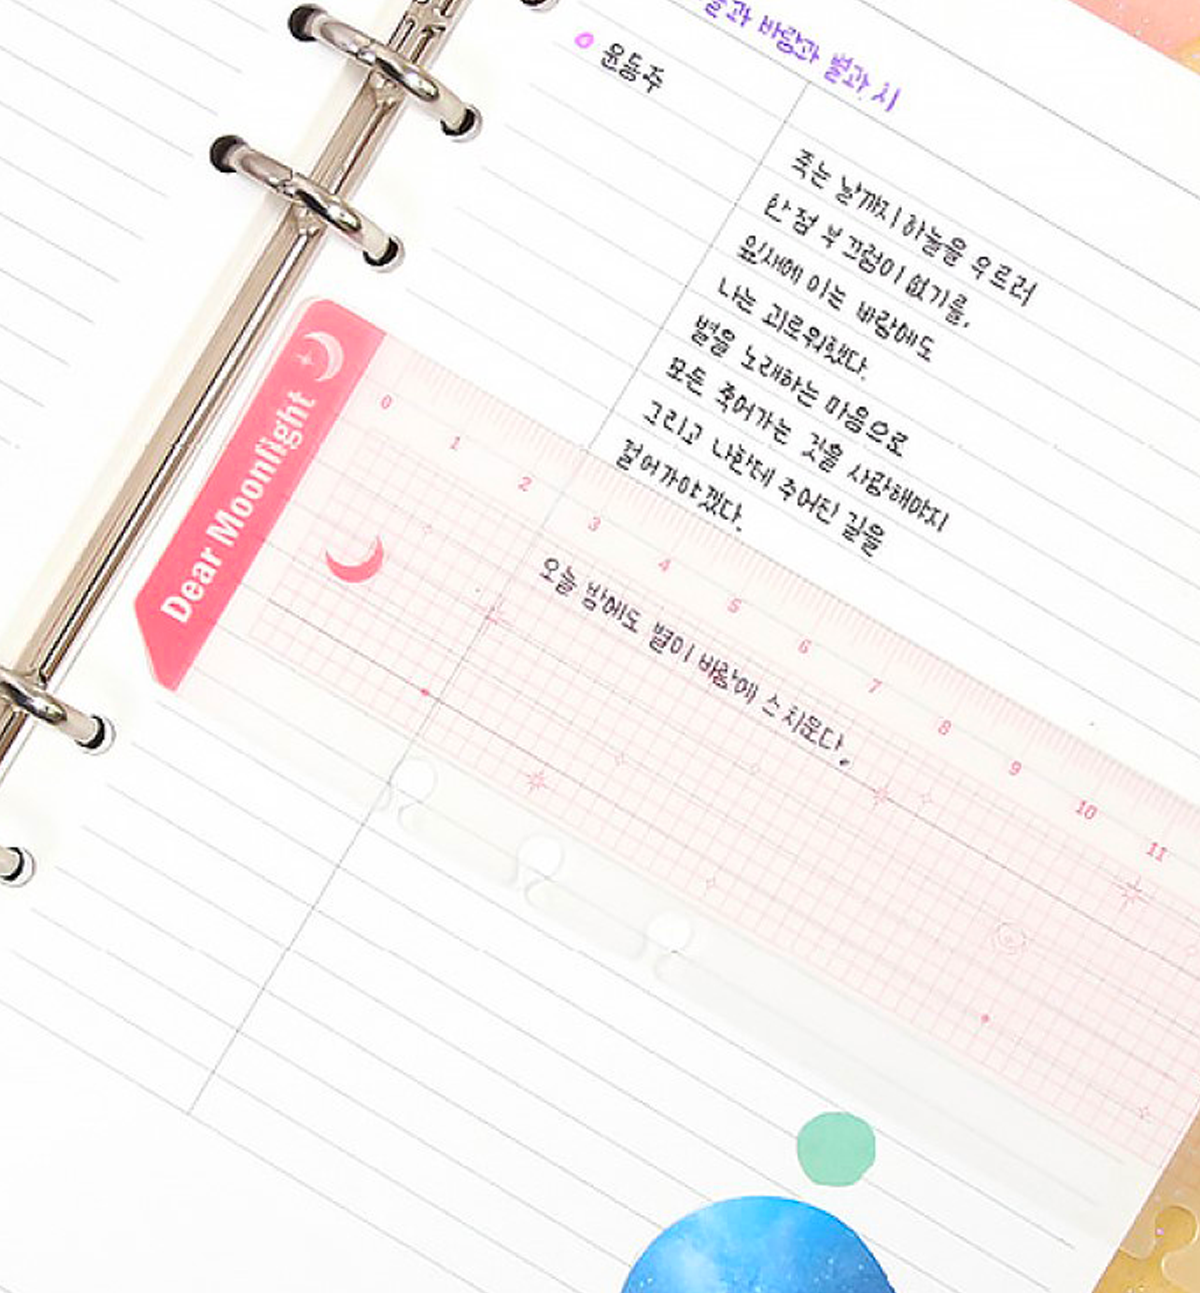 바람과 별과 시
윤동주
죽는 날까지 하늘을 우르러
한 점 부끄럼이 없기를,
잎새에 이는 바람에도
나는 괴로워했다.
별을 노래하는 마음으로
모든 죽어가는 것을 사랑해야지
그리고 나한테 주어진 길을
걸어가야겠다.
오늘 밤에도 별이 바람에 스치운다.
Dear Moonlight
0 1 2 3 4 5 6 7 8 9 10 11